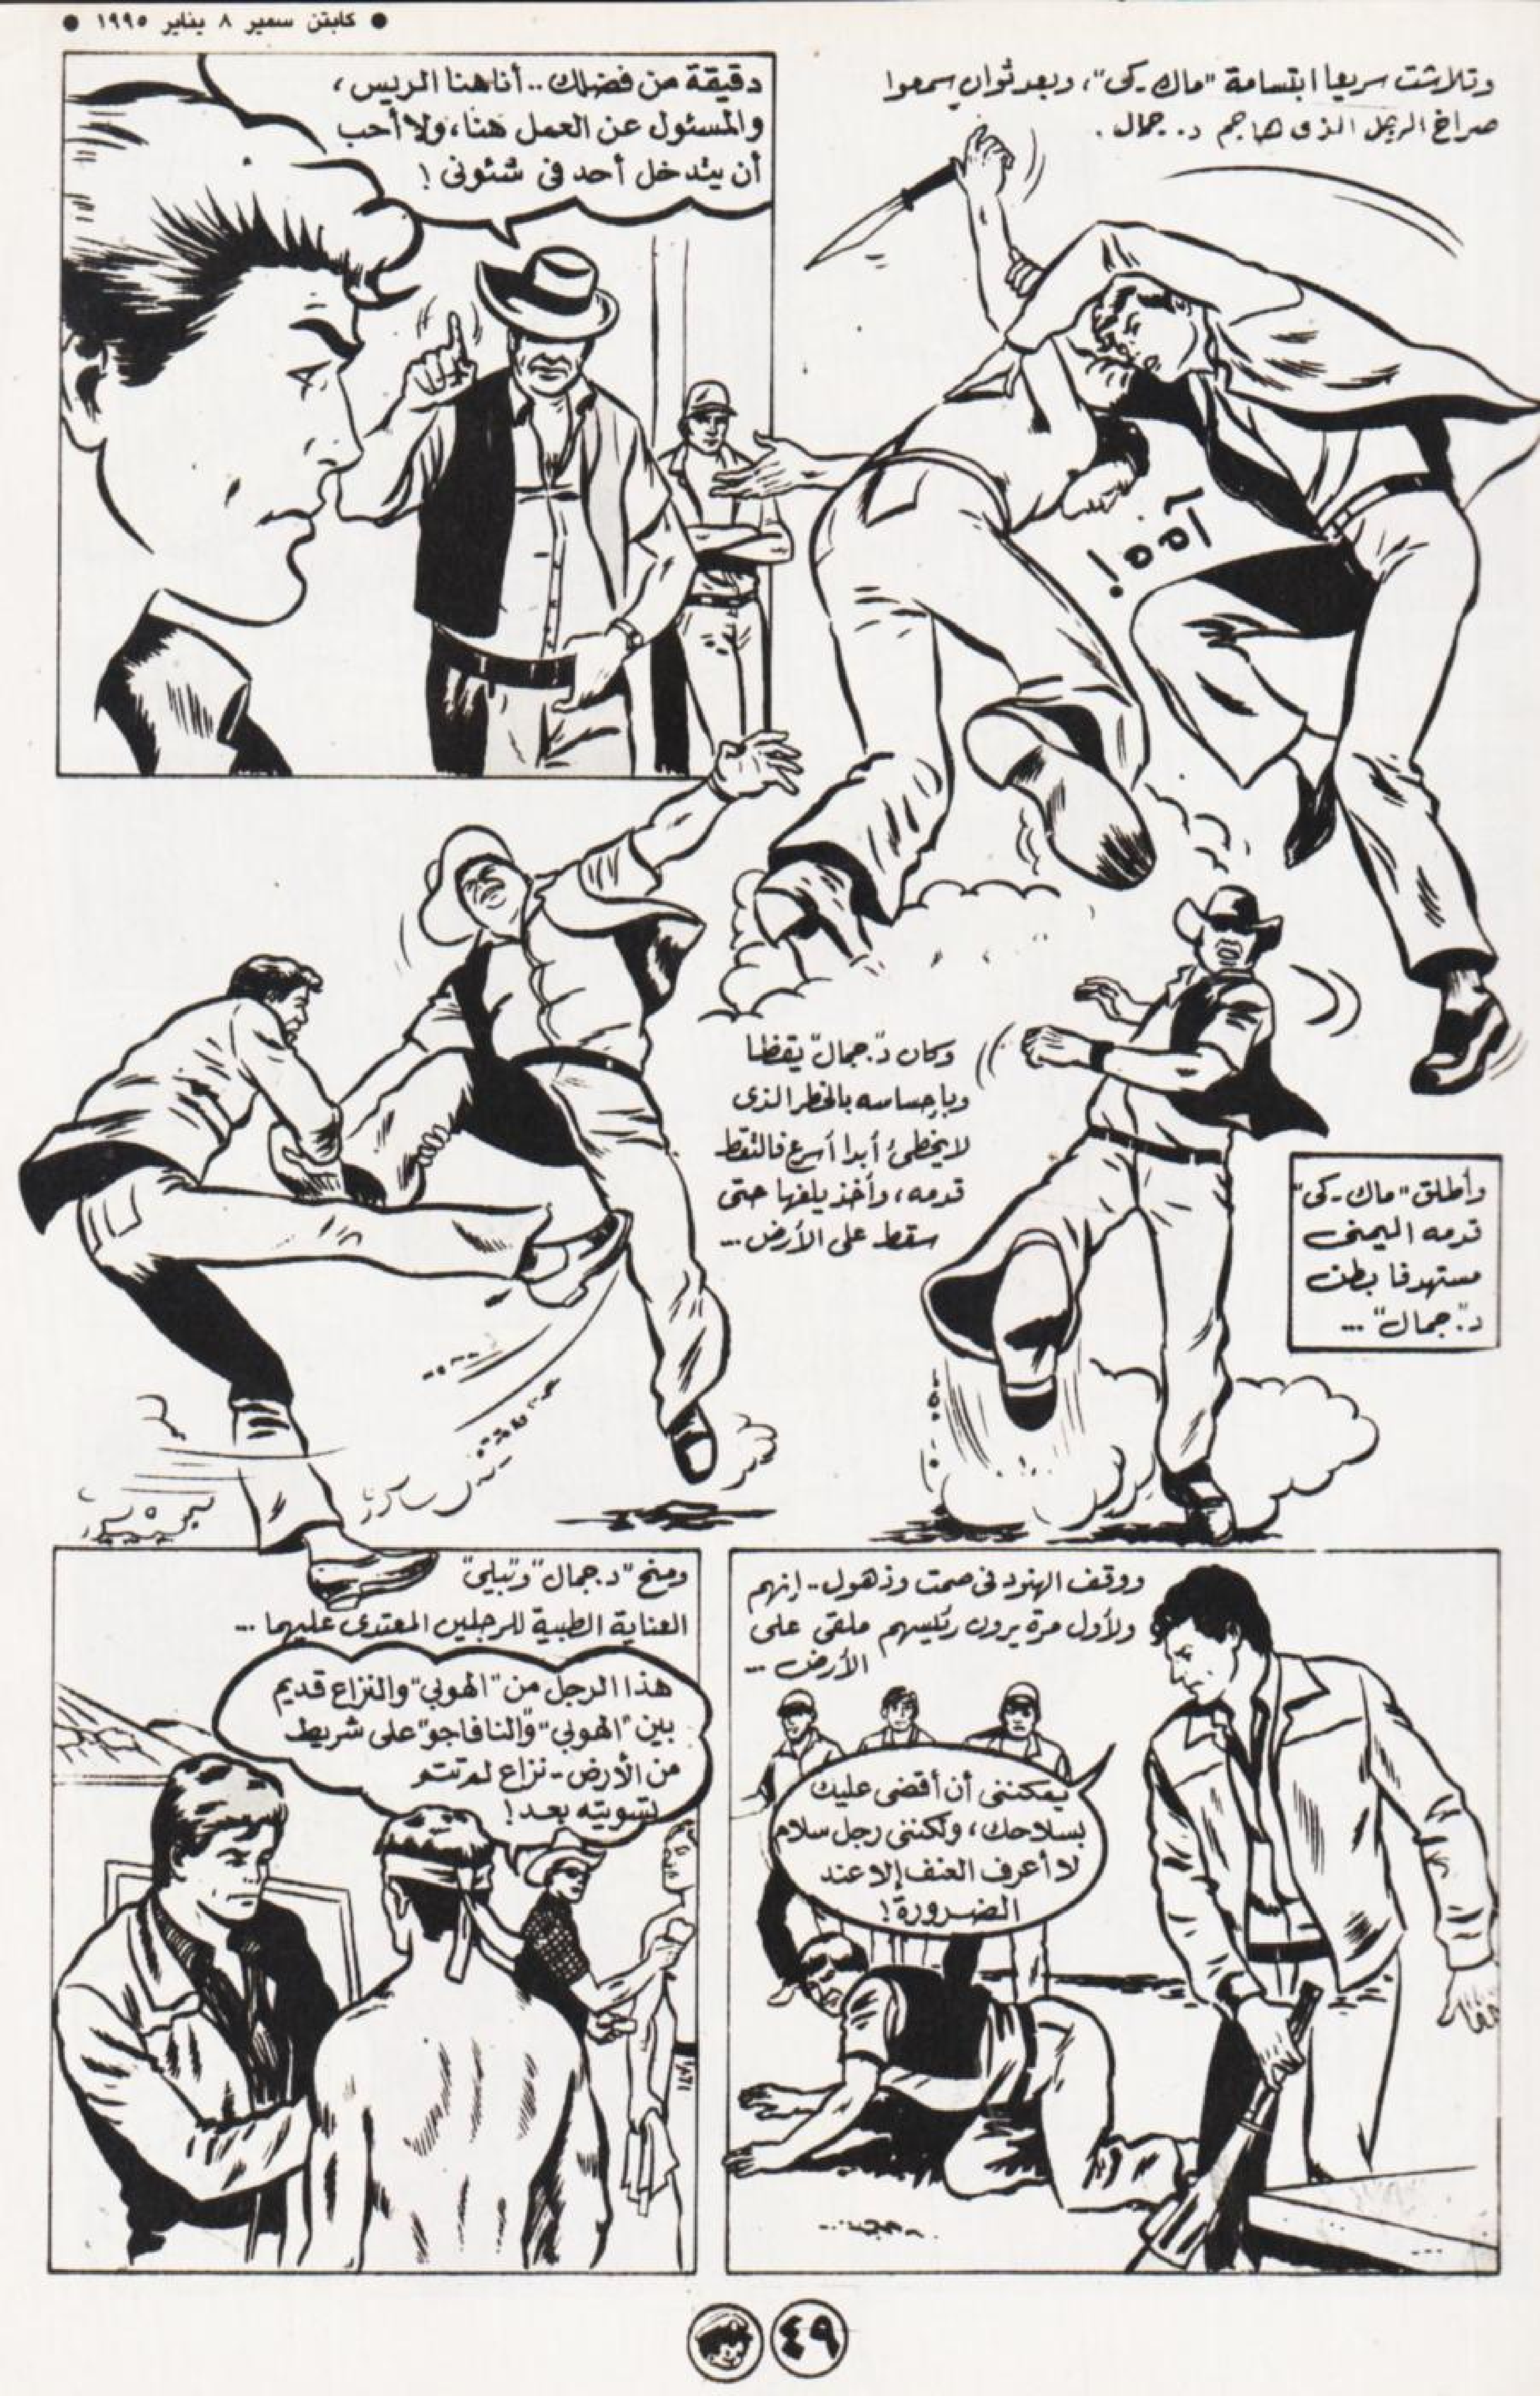 ● كابتن سمير ٨ يناير ١٩٩٥ ●
وتلاشت سريعا ابتسامة "ماك-كى"، وبعد ثوان سمعوا
صراخ الرجل الذى هاجم د. جمال .
آه ه!
دقيقة من فضلك .. أنا هنا الريس،
والمسئول عن العمل هنا، ولا أحب
أن يتدخل أحد فى شئونى !
وأطلق "ماك-كى"
قدمه اليمنى
مستهدفا بطن
د. "جمال" ...
وكان د. "جمال" يقظا
وبإحساسه بالخطر الذى
لا يخطئ أبدا أسرع فالتقط
قدمه، وأخذ يلفها حتى
سقط على الأرض ...
ووقف الهنود فى صمت وذهول .. إنهم
ولأول مرة يرون رئيسهم ملقى على
الأرض ...
يمكننى أن أقضى عليك
بسلاحك، ولكننى رجل سلام
لا أعرف العنف إلا عند
الضرورة !
ومنح "د. جمال" و"بيلى"
العناية الطبية للرجلين المعتدى عليهما ...
هذا الرجل من "الهوبى" والنزاع قديم
بين "الهوبى" و"النافاجو" على شريط
من الأرض - نزاع لم تتم
تسويته بعد !
٤٩